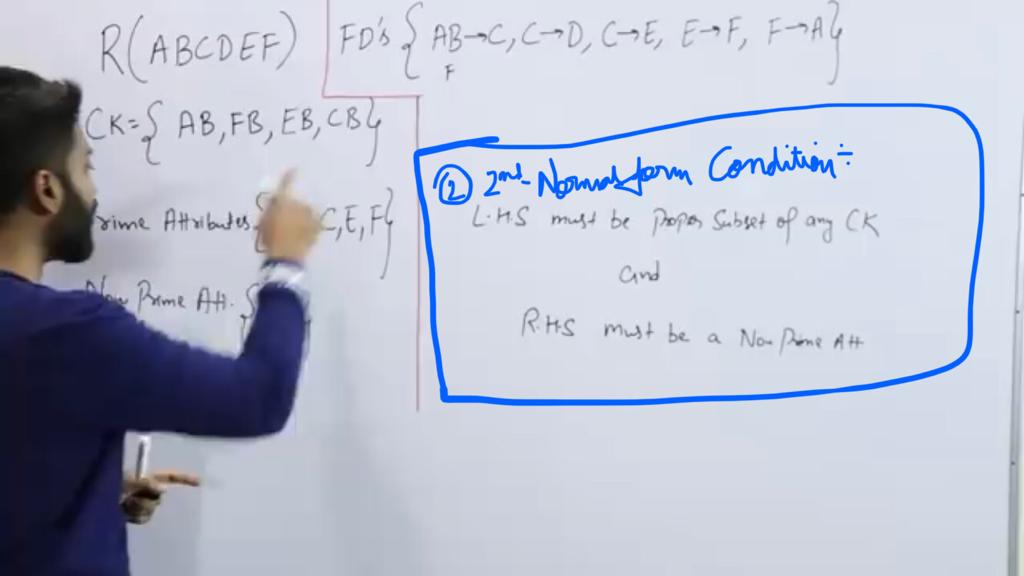 R(ABCDEF)
FD's { AB→C, C→D, C→E, E→F, F→A}
F
CK={ AB, FB, EB, CB}
rime Attributes { C, E, F}
Prime Att. {
② 2nd Normal form Condition÷
L.H.S must be Proper Subset of any CK
and
R.H.S must be a Non Prime Att